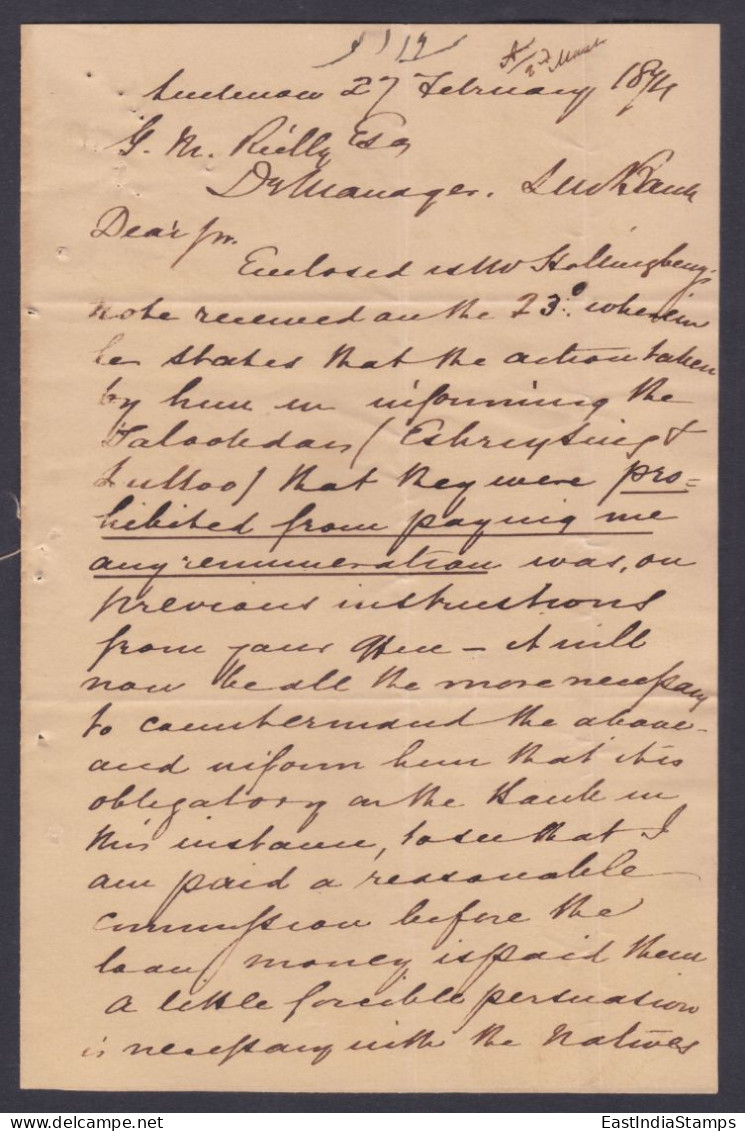 Lucknow 27 February 1874
G. M. Reilly Esq
Dy Manager. Bank
Dear Sir.
Enclosed is Mr Hollingbery's
note received on the 23º. wherein
he states that the action taken
by him in informing the
Talookdars (
) that they were pro=
hibited from paying me
any remuneration was, on
previous instructions
from your Office – it will
now be all the more necessary
to countermand the above –
and inform him that it is
obligatory on the Bank in
this instance, to see that I
am paid a reasonable
commission before the
loan money is paid them
A little forcible persuation
is necessary with the Natives
EastIndiaStamps